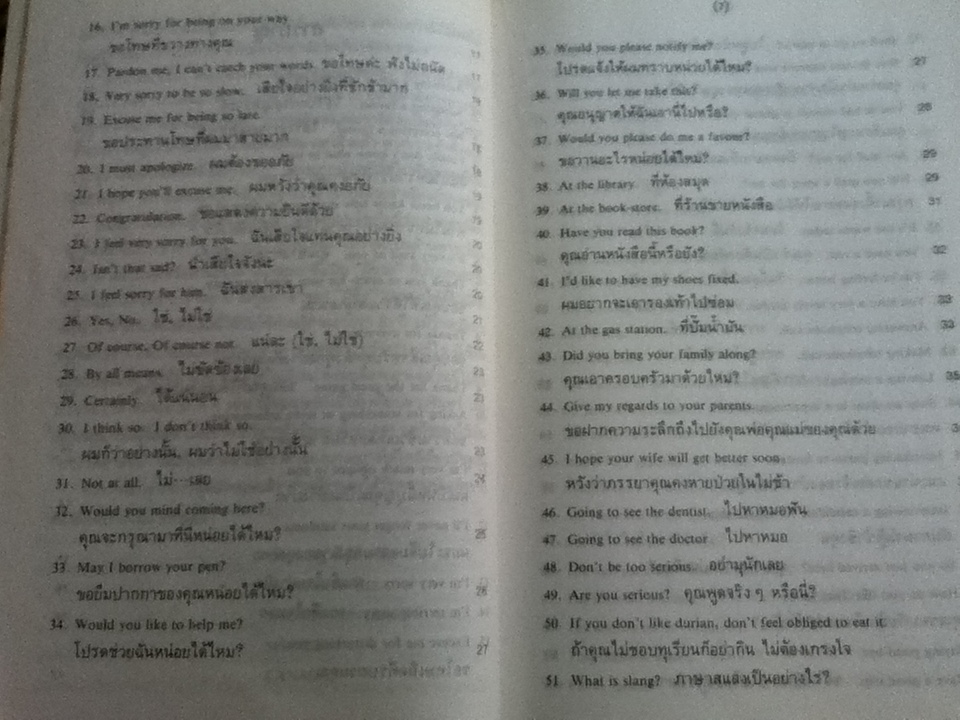 16. I'm sorry for being on your way.
ขอโทษที่ขวางทางคุณ
17. Pardon me, I can't catch your words. ขอโทษค่ะ ฟังไม่ถนัด
18. Very sorry to be so slow. เสียใจอย่างยิ่งที่ชักช้ามาก
19. Excuse me for being so late.
ขอประทานโทษที่ผมมาสายมาก
20. I must apologize. ผมต้องขออภัย
21. I hope you'll excuse me. ผมหวังว่าคุณคงอภัย
22. Congratulation. ขอแสดงความยินดีด้วย
23. I feel very sorry for you. ฉันเสียใจแทนคุณอย่างยิ่ง
24. Isn't that sad? น่าเสียใจจังนะ
25. I feel sorry for him. ฉันสงสารเขา
26. Yes, No. ใช่, ไม่ใช่
27. Of course, Of course not. แน่ละ (ใช่, ไม่ใช่)
28. By all means. ไม่ขัดข้องเลย
29. Certainly. ได้แน่นอน
30. I think so. I don't think so.
ผมก็ว่าอย่างนั้น, ผมว่าไม่ใช่อย่างนั้น
31. Not at all. ไม่…เลย
32. Would you mind coming here?
คุณจะกรุณามาที่นี่หน่อยได้ไหม? 25
33. May I borrow your pen?
ขอยืมปากกาของคุณหน่อยได้ไหม? 26
34. Would you like to help me?
โปรดช่วยฉันหน่อยได้ไหม? 27
(7)
35. Would you please notify me?
โปรดแจ้งให้ผมทราบหน่อยได้ไหม? 27
36. Will you let me take this?
คุณอนุญาตให้ฉันเอานี่ไปหรือ? 28
37. Would you please do me a favour?
ขอวานอะไรหน่อยได้ไหม? 29
38. At the library. ที่ห้องสมุด 29
39. At the book-store. ที่ร้านขายหนังสือ 31
40. Have you read this book?
คุณอ่านหนังสือนี้หรือยัง? 32
41. I'd like to have my shoes fixed.
ผมอยากจะเอารองเท้าไปซ่อม 33
42. At the gas station. ที่ปั๊มน้ำมัน 33
43. Did you bring your family along?
คุณเอาครอบครัวมาด้วยไหม? 35
44. Give my regards to your parents.
ขอฝากความระลึกถึงไปยังคุณพ่อคุณแม่ของคุณด้วย
45. I hope your wife will get better soon.
หวังว่าภรรยาคุณคงหายป่วยในไม่ช้า
46. Going to see the dentist. ไปหาหมอฟัน
47. Going to see the doctor. ไปหาหมอ
48. Don't be too serious. อย่ามุนักเลย
49. Are you serious? คุณพูดจริง ๆ หรือนี่?
50. If you don't like durian, don't feel obliged to eat it.
ถ้าคุณไม่ชอบทุเรียนก็อย่ากิน ไม่ต้องเกรงใจ
51. What is slang? ภาษาสแลงเป็นอย่างไร?